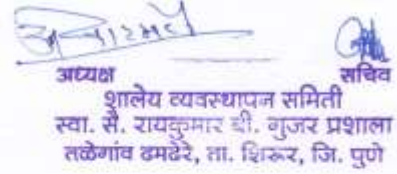 अध्यक्ष सचिव
शालेय व्यवस्थापन समिती
स्वा. सै. रायकुमार बी. गुजर प्रशाला
तळेगांव ढमढेरे, ता. शिरूर, जि. पुणे